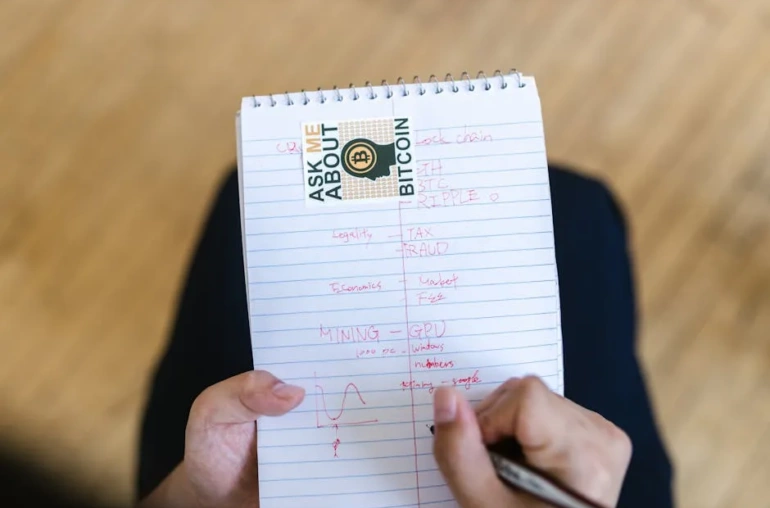 ASK ME
ABOUT
BITCOIN
chain
ETH
BTC
RIPPLE
Legality - TAX
- FRAUD
Economics - Market
- Fee
MINING - GPU
- Windows
numbers
- single